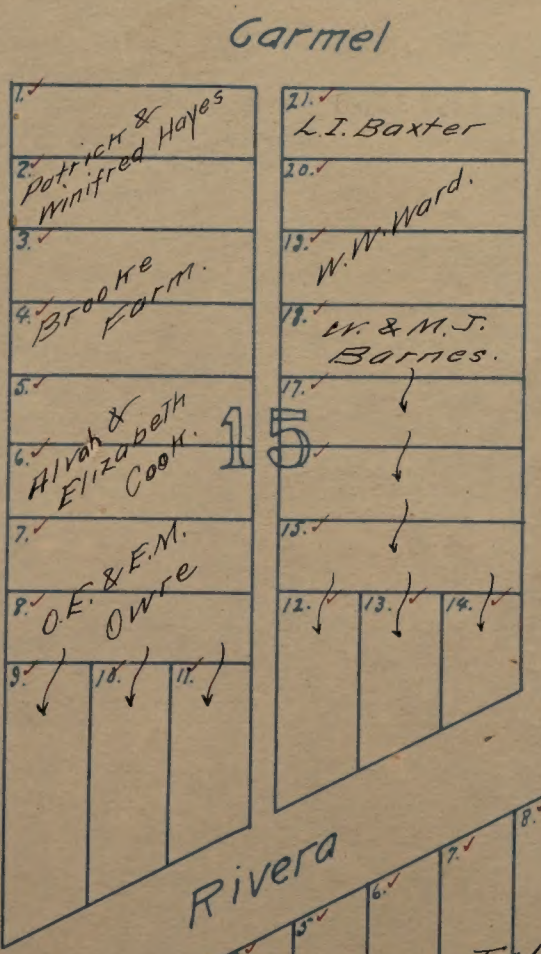 Carmel
1.
Patrick &
Winifred Hayes
2.
3.
Brooke
Farm.
4.
5.
Alvah &
Elizabeth
Cook.
6.
7.
O.E. & E.M.
Owre
8.
9. 10. 11.
15
21.
L.I. Baxter
20.
W.W. Ward.
19.
18.
W. & M.J.
Barnes.
17.
15.
12. 13. 14.
Rivera
5
6.
7.
8.